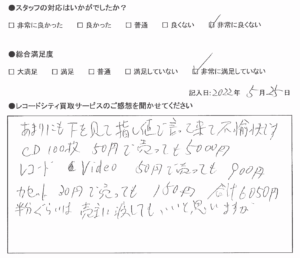 ●スタッフの対応はいかがでしたか？
□非常に良かった □良かった □普通 □良くない ☑非常に良くない
●総合満足度
□大満足 □満足 □普通 □満足していない ☑非常に満足していない
記入日:2022年 5月 25日
●レコードシティ買取サービスのご感想を聞かせてください
あまりにも下を見て指し値で言って来て不愉快です
CD100枚 50円で売っても5000円
レコード Video 50円で売っても 900円
カセット 30円で売っても 150円 合計6050円
ぐらいは 売主に渡してもいいと思いますが